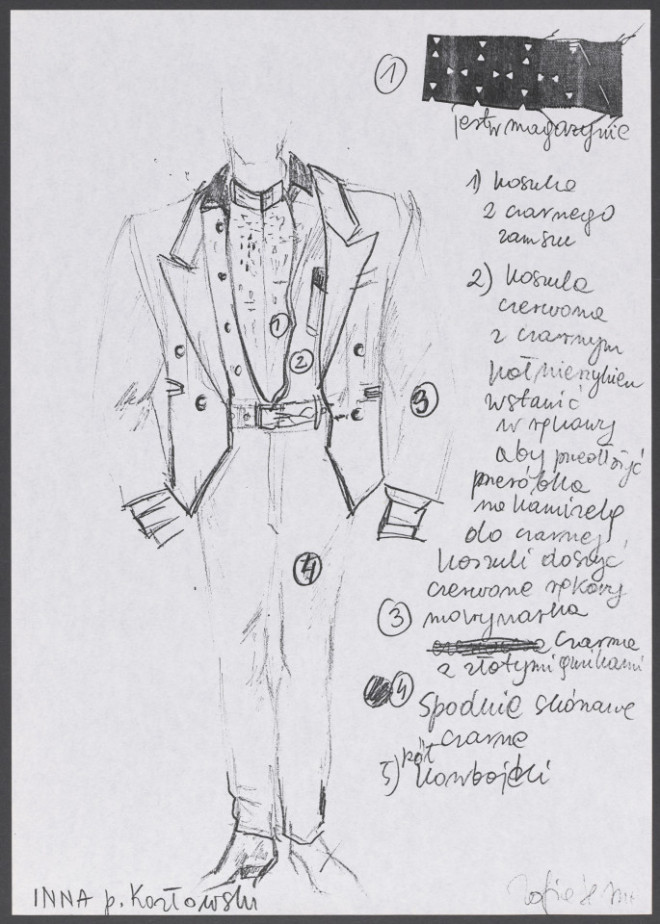 1
jest w magazynie
1) koszula
z czarnego
zamszu
2) koszula
czerwona
z czarnym
kołnierzykiem
wstawić
w rękawy
aby przedłużyć
przeróbka
na kamizelę
do czarnej
koszuli doszyć
czerwone rękawy
3 marynarka
czarna
z złotymi guzikami
4 Spodnie skórzane
czarne
5) półkowbojki
1
2
3
4
INNA p. Kozłowski